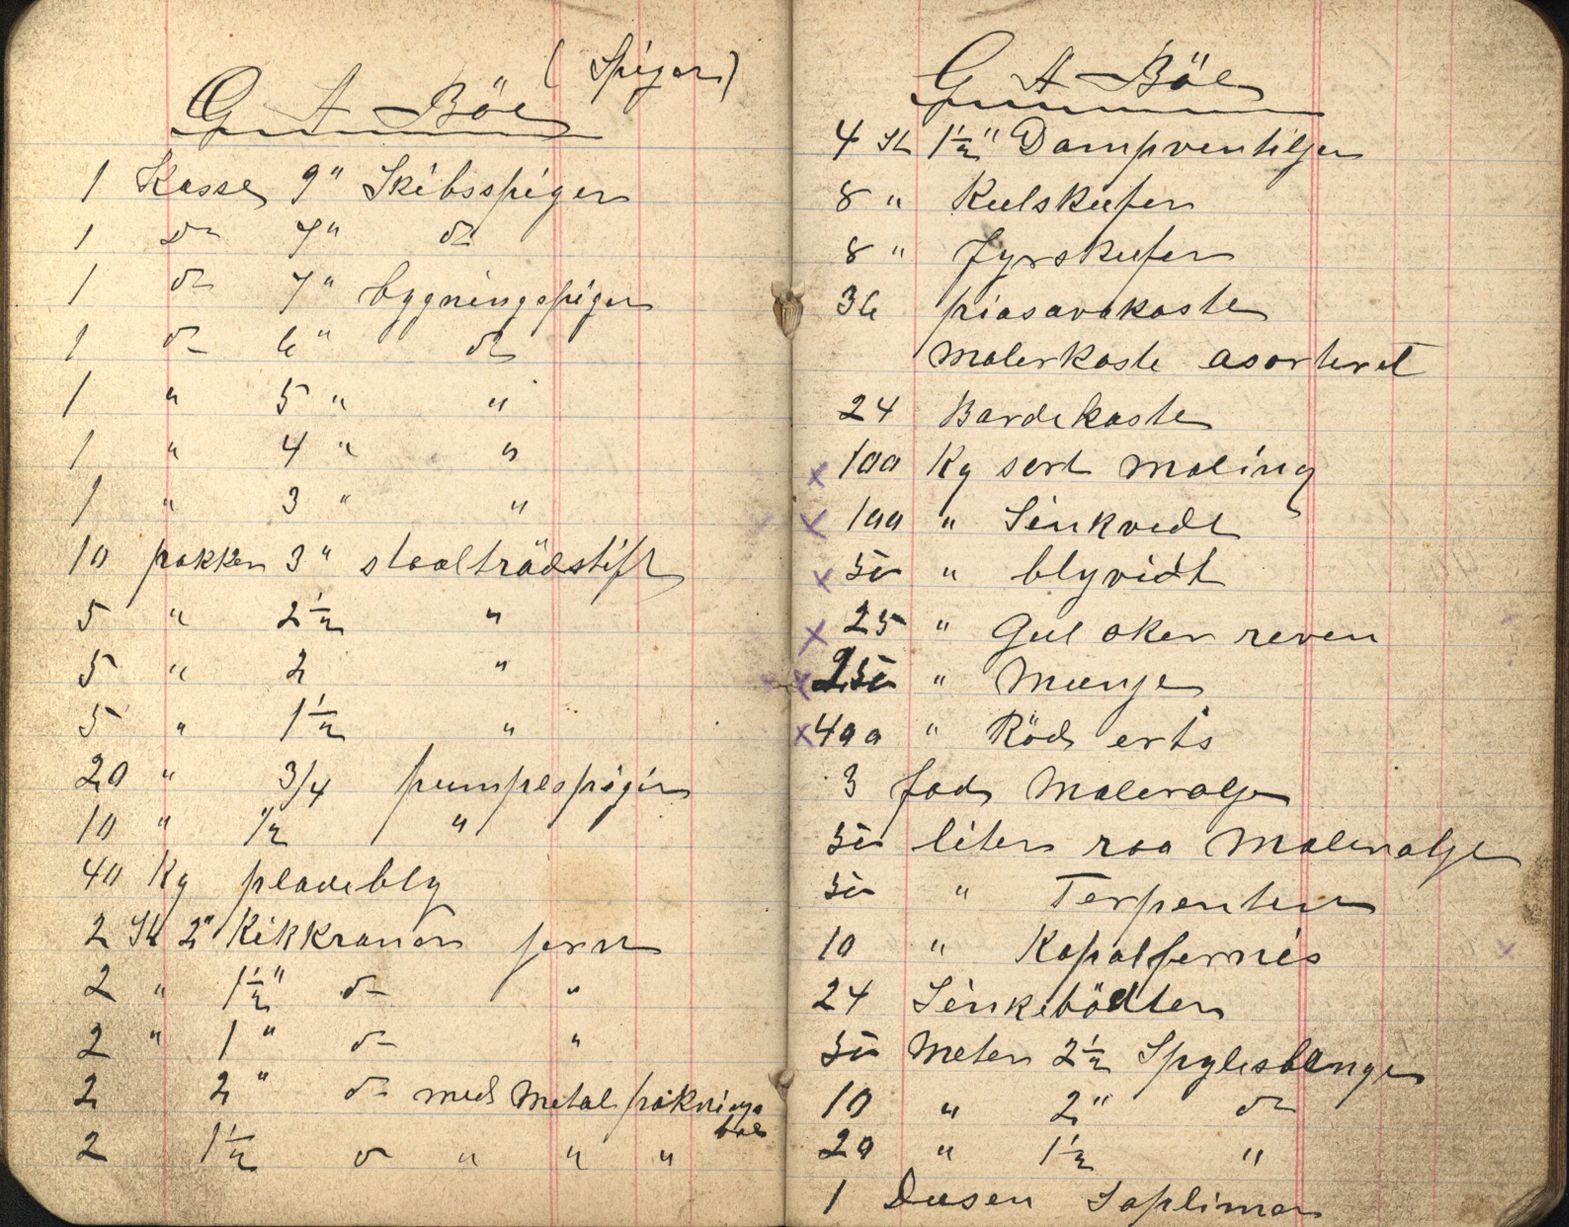 G A Böe (Spiger)
1 Kasse 9" Skibsspiger
1 do 7" do
1 do 7" bygningspiger
1 do 6" do
1 " 5 " "
1 " 4 " "
1 " 3 " "
10 pakker 3" staaltrådstift
5 " 2½ "
5 " 2 "
5 " 1½ "
20 " 3/4 pumpespiger
10 " ½ "
40 Kg pladebly
2 St 2" Kikkraner jern
2 " 1½" do "
2 " 1 " do "
2 2 " do med Metal pakningsbos
2 1½ do " " "
G A Böe
4 St 1½" Dampventiljer
8 " Kulskufer
8 " Fyrskufer
36 piasavakoste
malerkoste asorteret
24 Bardekoste
x 100 Kg sort maling
x 100 " Sinkvidt
x 50 " blyvidt
x 25 " Gul oker reven
x 250 " Mønje
x 400 " Röd erts
3 fad Malerolje
50 liter raa Malerolje
50 " Terpentin
10 " Kopalfernis
24 Sinkebötter
50 Meter 2½ Spyleslange
10 " 2" do
20 " 1½ "
1 Dusen Saplimer